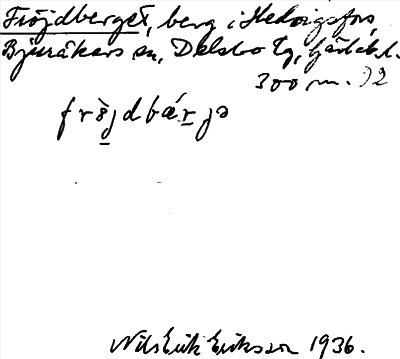 Fröjdberget, berg i Hedvigsfors,
Bjuråkers sn, Delsbo tg, Gävlebl.
300 m. )2
frö̀jdbǽrjə
Nils Erik Eriksson 1936.